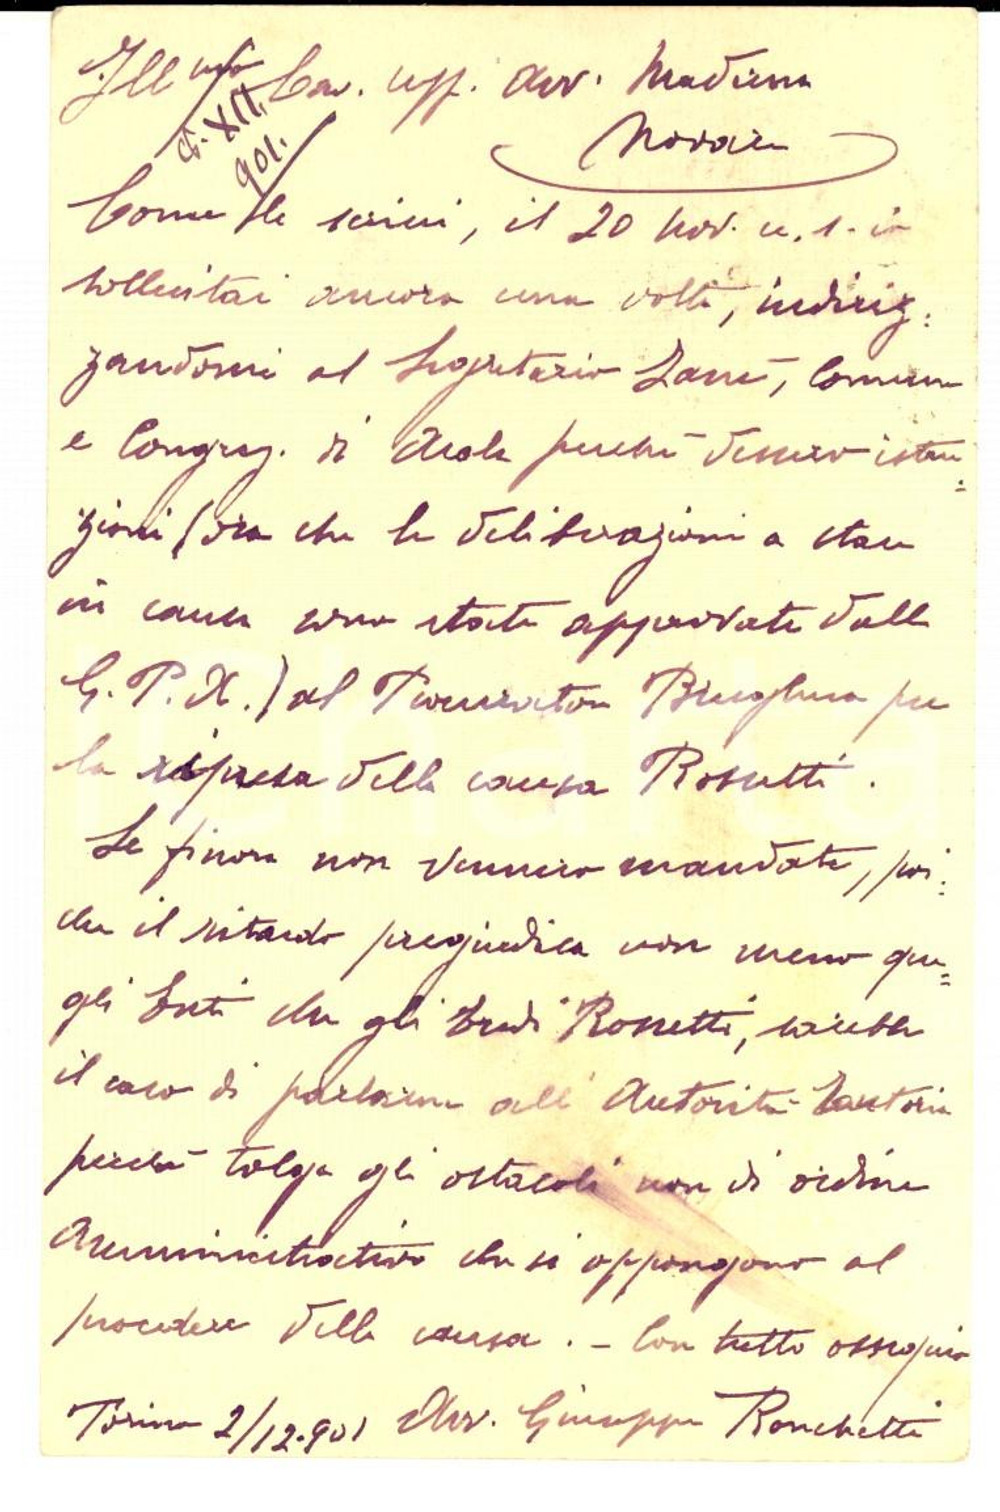 Ill mo Cav. uff. avv. Madina
XII.
901.
Novara
Come le scrissi, il 20 nov. u. s. io
sollecitai ancora una volta, indiriz:
zandomi al Segretario Zani, Comune
e Congreg. di Arola perchè dessero istru=
zioni (ora che le deliberazioni a stare
in causa sono state approvate dalla
G. P. A.) al Procuratore Brughera per
la ripresa della causa Rossetti.
Se finora non vennero mandate, poi:
che il ritardo pregiudica non meno que=
gli Enti che gli Eredi Rossetti, sarebbe
il caso di parlarne all' Autorità tutoria
perchè tolga gli ostacoli non di ordine
Amministrativo che si oppongono al
procedere della causa. – Con tutto ossequio
Torino 2/12.901 Avv. Giuseppe Ronchetti